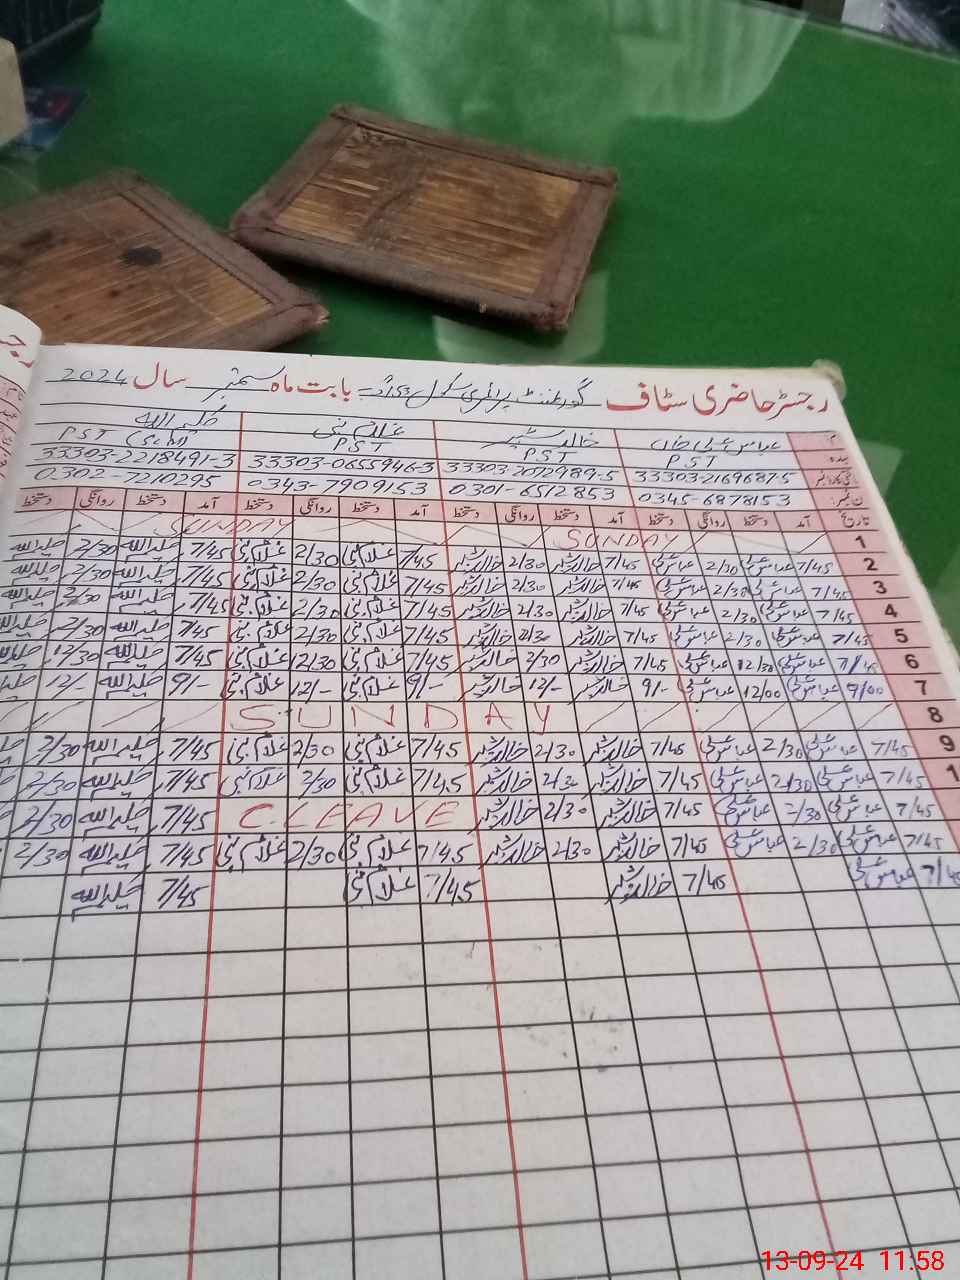 رجسٹر حاضری سٹاف گورنمنٹ پرائمری سکول بابت ماہ ستمبر سال 2024
عباس علی خان خالد بشیر غلام نبی حکیم اللہ
عہدہ PST PST PST PST (S.M)
33303-2169687-5 33303-2072989-5 33303-0655946-3 33303-2218491-3
0345-6878153 0301-6512853 0343-7909153 0302-7210295
تاریخ آمد دستخط روانگی دستخط آمد دستخط روانگی دستخط آمد دستخط روانگی دستخط آمد دستخط روانگی دستخط
1 SUNDAY SUNDAY
2 7/45 عباس علی 2/30 عباس علی 7/45 خالد بشیر 2/30 خالد بشیر 7/45 غلام نبی 2/30 غلام نبی 7/45 حکیم اللہ 2/30 حکیم اللہ
3 7/45 عباس علی 2/30 عباس علی 7/45 خالد بشیر 2/30 خالد بشیر 7/45 غلام نبی 2/30 غلام نبی 7/45 حکیم اللہ 2/30 حکیم اللہ
4 7/45 عباس علی 2/30 عباس علی 7/45 خالد بشیر 2/30 خالد بشیر 7/45 غلام نبی 2/30 غلام نبی 7/45 حکیم اللہ 2/30 حکیم اللہ
5 7/45 عباس علی 2/30 عباس علی 7/45 خالد بشیر 2/30 خالد بشیر 7/45 غلام نبی 2/30 غلام نبی 7/45 حکیم اللہ 2/30 حکیم اللہ
6 7/45 عباس علی 12/30 عباس علی 7/45 خالد بشیر 2/30 خالد بشیر 7/45 غلام نبی 12/30 غلام نبی 7/45 حکیم اللہ 12/30 حکیم اللہ
7 9/00 عباس علی 12/00 عباس علی 9/- خالد بشیر 12/- خالد بشیر 9/- غلام نبی 12/- غلام نبی 9/- حکیم اللہ 12/- حکیم اللہ
8 SUNDAY
9 7/45 عباس علی 2/30 عباس علی 7/45 خالد بشیر 2/30 خالد بشیر 7/45 غلام نبی 2/30 غلام نبی 7/45 حکیم اللہ 2/30
1 7/45 عباس علی 2/30 عباس علی 7/45 خالد بشیر 2/30 خالد بشیر 7/45 غلام نبی 2/30 غلام نبی 7/45 حکیم اللہ 2/30
7/45 عباس علی 2/30 عباس علی 7/45 خالد بشیر 2/30 خالد بشیر C.LEAVE 7/45 حکیم اللہ 2/30
7/45 عباس علی 2/30 عباس علی 7/45 خالد بشیر 2/30 خالد بشیر 7/45 غلام نبی 2/30 غلام نبی 7/45 حکیم اللہ 2/30
7/45 عباس علی 7/45 خالد بشیر 7/45 غلام نبی 7/45 حکیم اللہ
13-09-24 11:58